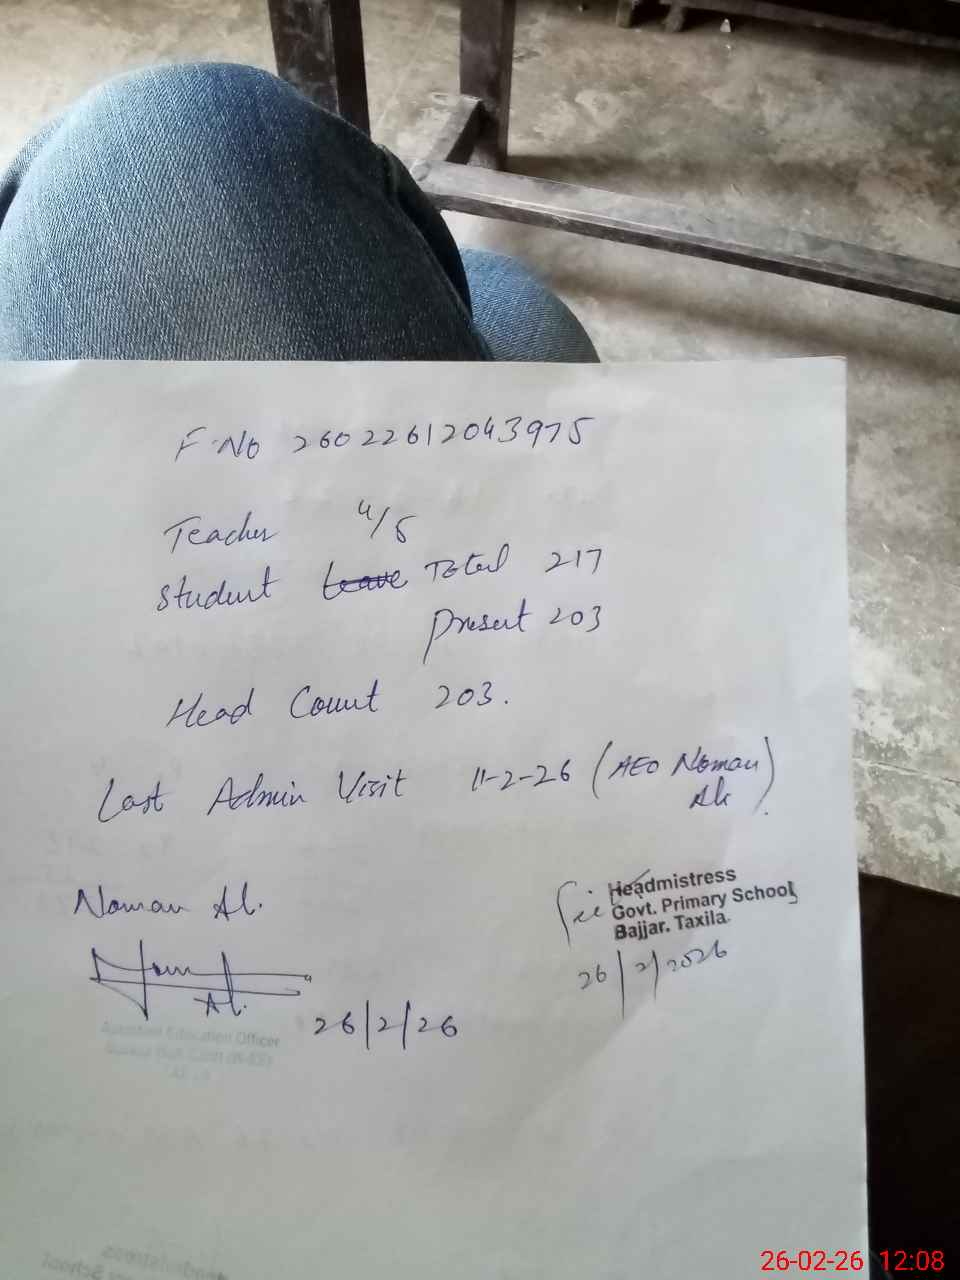 F.No 26022612043975
Teacher 4/5
Student Leave Total 217
Present 203
Head Count 203.
Last Admin Visit 11-2-26 (AEO Noman Ali)
Noman Ali.
Headmistress
Govt. Primary School
Bajjar. Taxila.
26/2/2026
Ali.
26/2/26
Assistant Education Officer
26-02-26 12:08